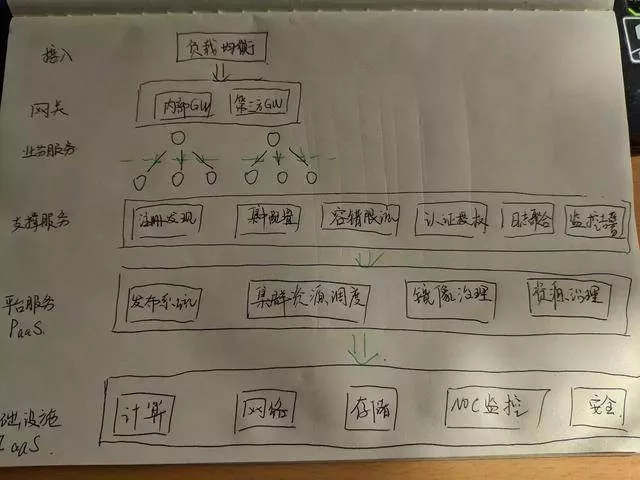 接入 负载均衡
网关 内部GW 第三方GW
业务服务
支撑服务 注册发现 集中配置 容错限流 认证授权 日志聚合 监控告警
平台服务 发布系统 集群资源调度 镜像治理 资源治理
PaaS.
础设施 计算 网络 存储 NOC监控 安全
IaaS.